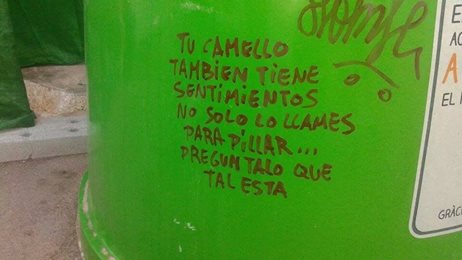 TU CAMELLO
TAMBIEN TIENE
SENTIMIENTOS
NO SOLO LO LLAMES
PARA PILLAR...
PREGUNTALO QUE
TAL ESTA
EL
GRÀC